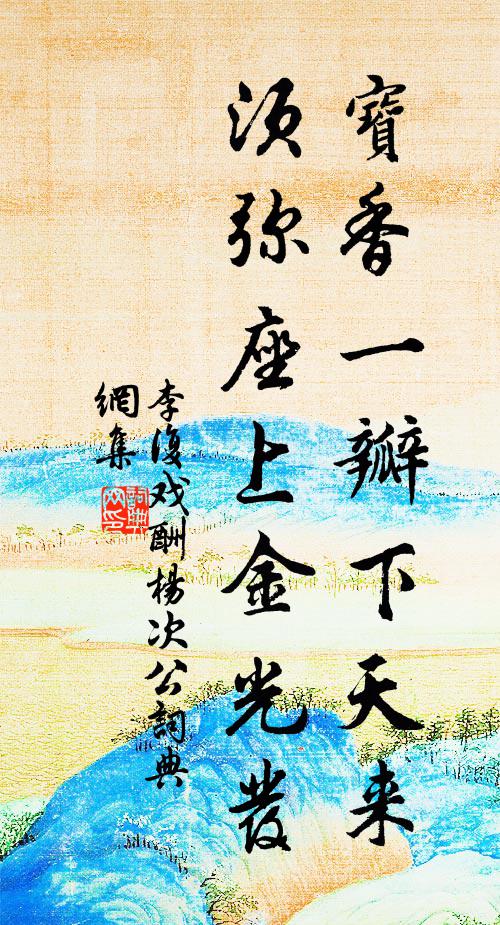 寶香一瓣下天来
须弥座上金光發
李復戏酬楊次公詞典
網集
詞典網印